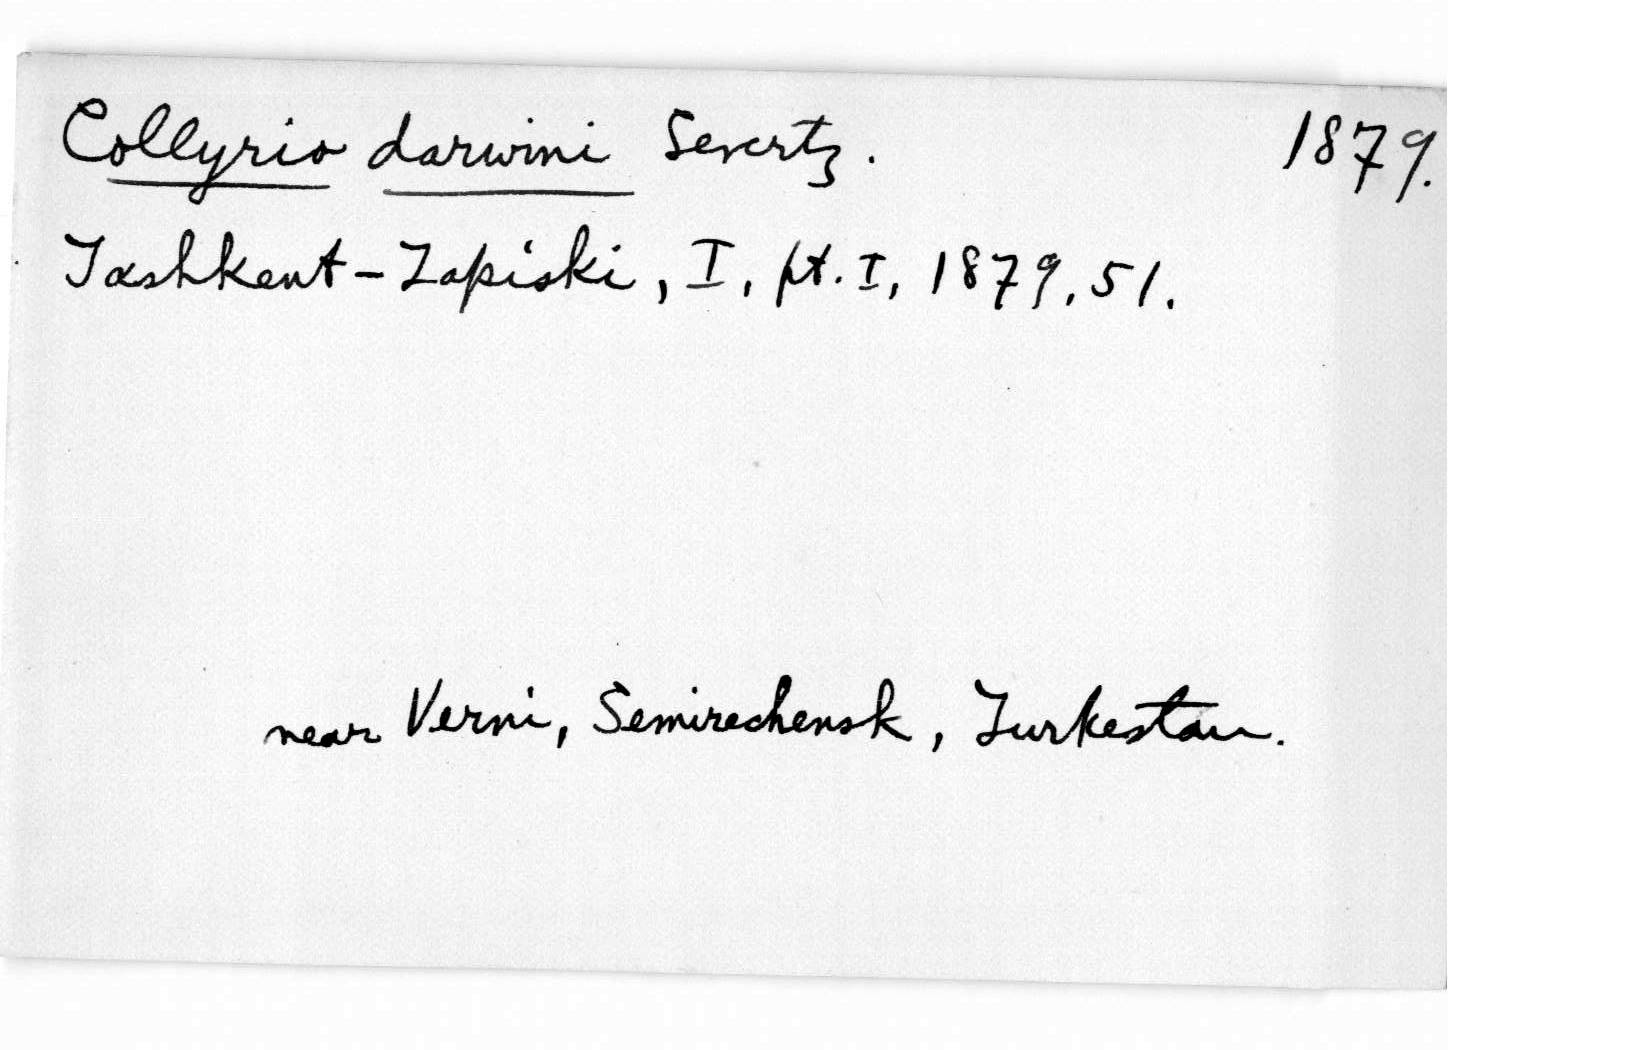 Collyrio darwini Severtz. 1879.
Tashkent-Zapiski, I, pt. I, 1879, 51.
near Verni, Semirechensk, Turkestan.